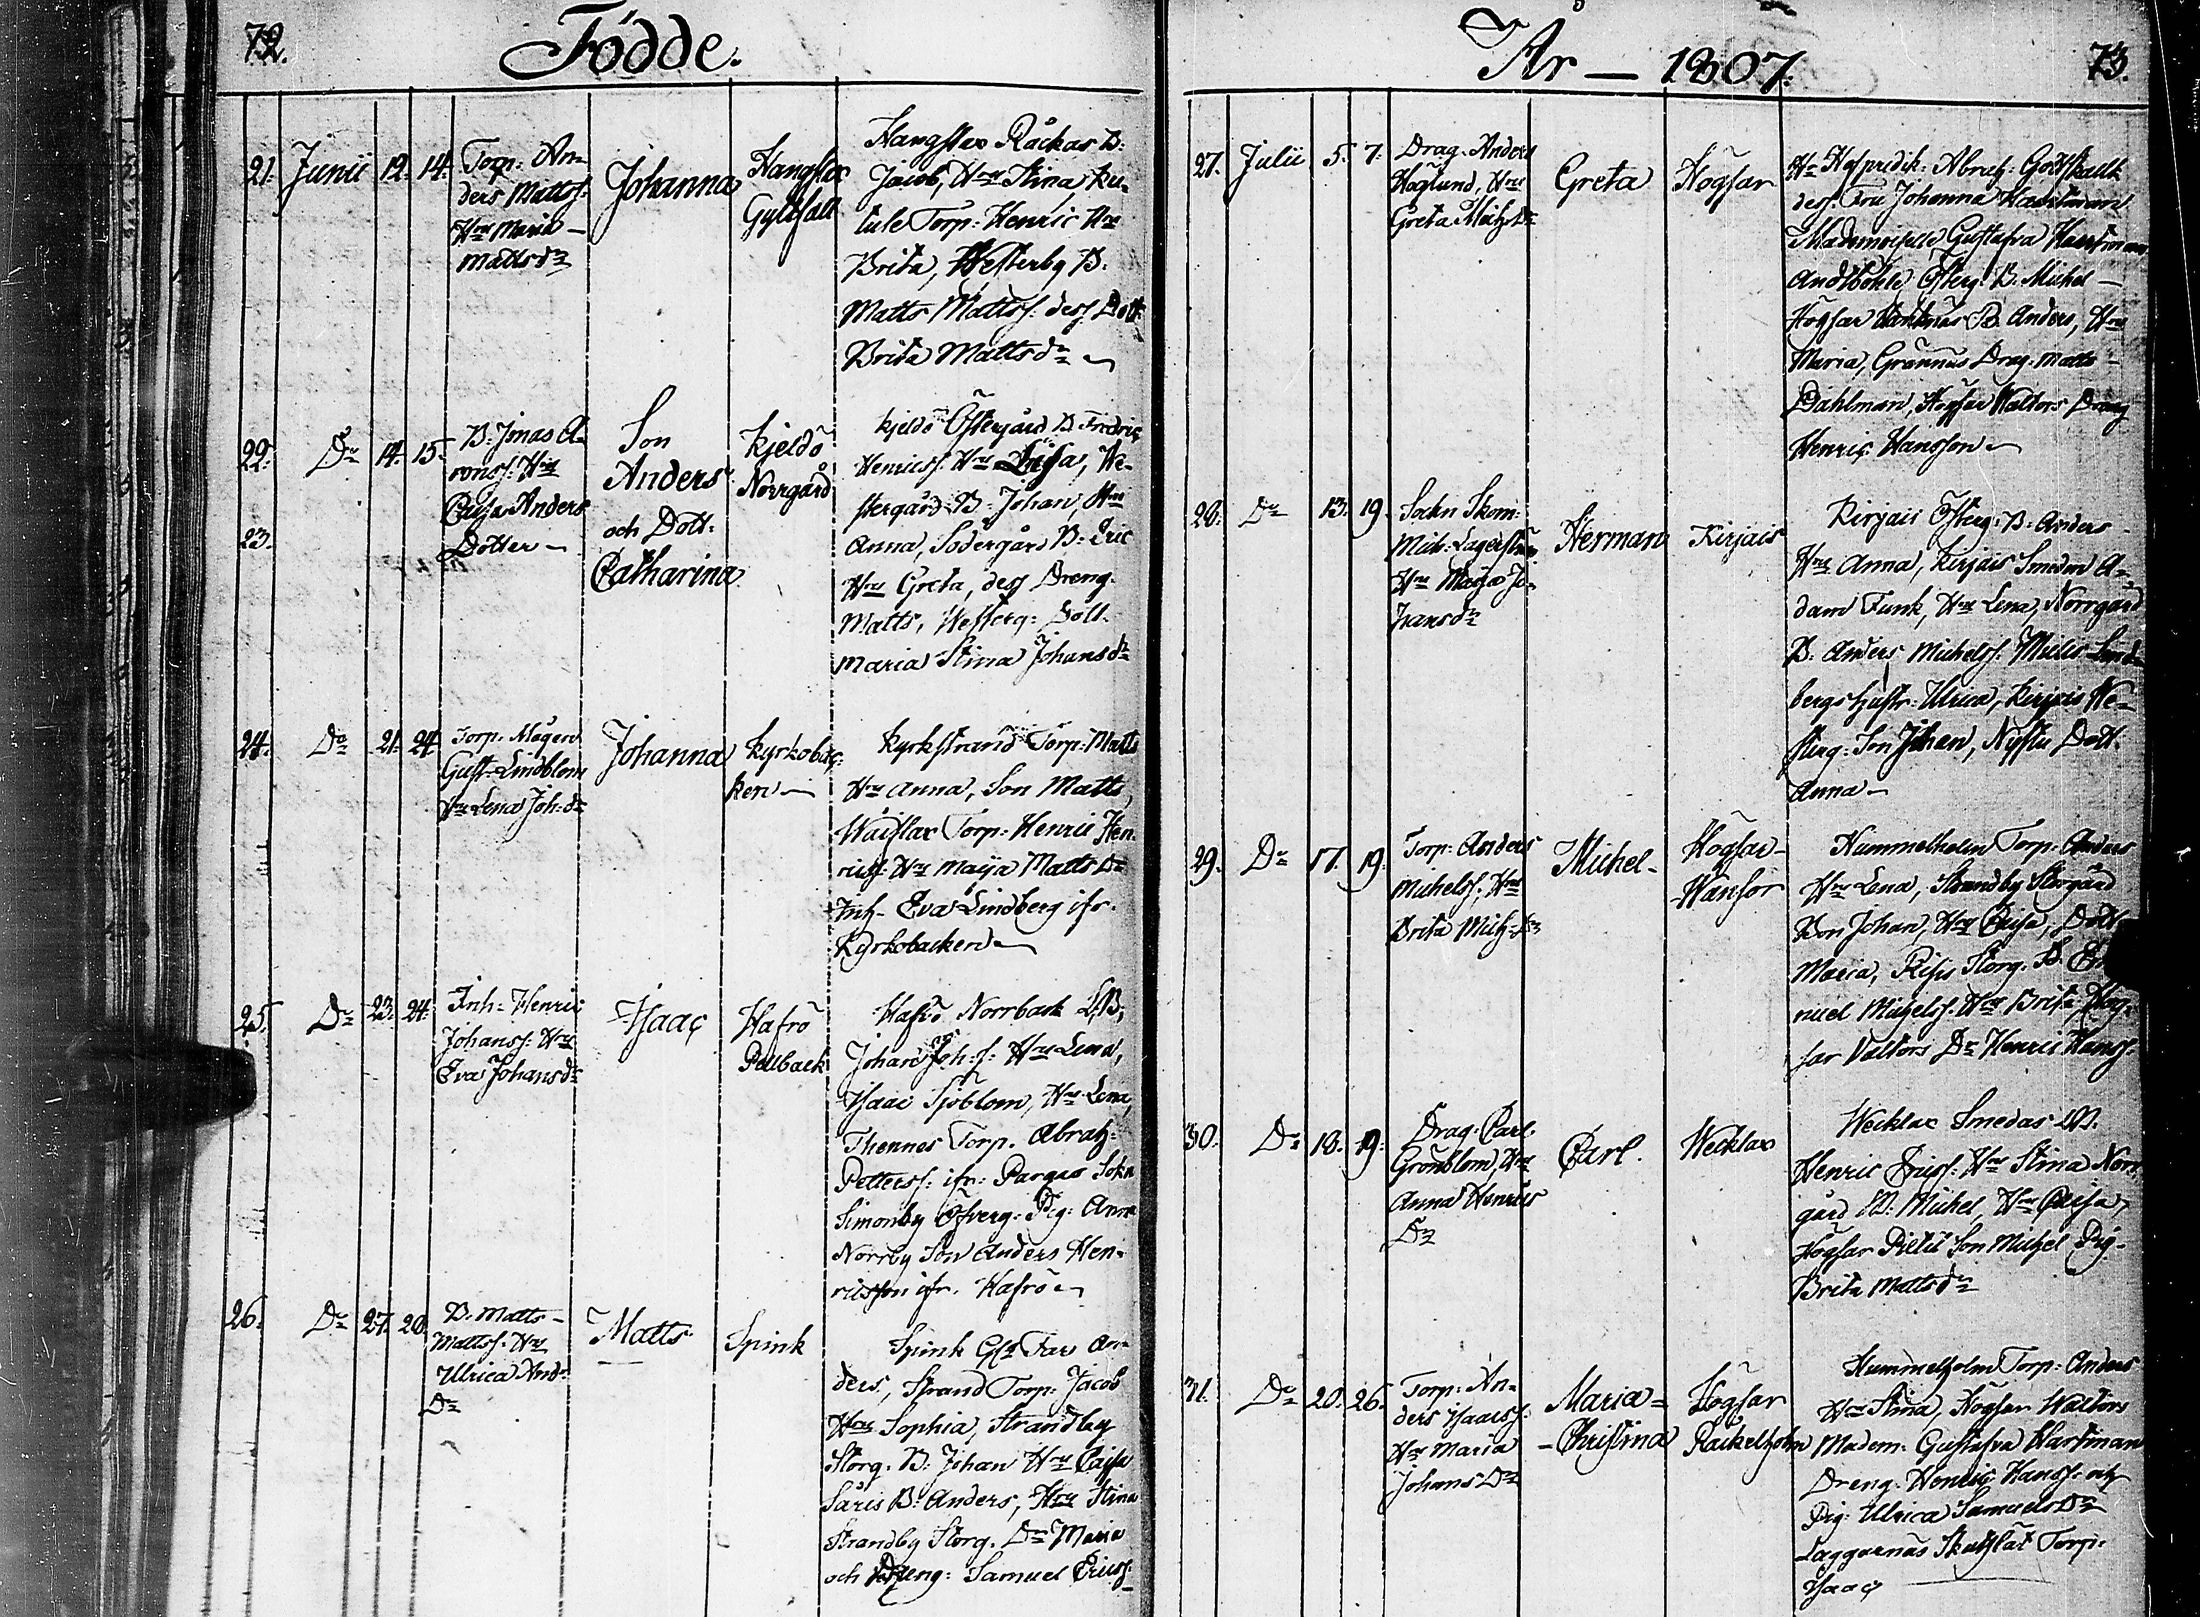 72.
Födde.
21. Junii 12. 14.
Torp: An-
ders Mattss:
Hru Maria
Mattsdr
Johanna
Hangslax
Gyltsall
Hangslax Råckas B:
Jacob, Hru Stina, Ku-
tule Torp: Henric Hru
Brita, Westerby B:
Matts Mattss: dess Dott:
Brita Mattsdr
22. Do 14. 15.
23.
B: Jonas A-
ronss: Hru
Caisa Anders
Dotter
Son
Anders
och Dott:
Catharina
Kjeldö
Norrgård
Kjeldö Östergård B. Fredric
Henricss: Hru Lisa, We-
stergård B: Johan, Hru
Anna, Södergård B: Eric
Hru Greta, dess Dreng
Matts, Westerg: Dott.
Maria Stina Johansdr
24. Do 21. 24.
Torp: Mågen
Gust: Lindblom
Hru Lena Joh:dr
Johanna
Kyrkobac-
ken
Kyrkstrand Torp: Matts
Hru Anna, Son Matts,
Waislax Torp: Henric Hen-
ricss: Hru Maija Matts Dr
Inh- Eva Lindberg ifr.
Kyrkobacken
25. Do 23. 24.
Inh: Henric
Johanss: Hru
Eva Johansdr
Isaac
Hafrö
Pellback
Hafrö Norrback LB:
Johan Joh:s: Hru Lena,
Isaac Sjöblom, Hru Lena,
Thennes Torp. Abrah:
Petterss: ifr: Pargas Sokn
Simonby Öfverg: Pig: Anna
Norrby Son Anders Hen-
ricsson ifr. Hafrö
26. Do 27. 28.
B. Matts
Mattss: Hru
Ulrica And:
Dr
Matts
Spink
Spink Far An-
ders, Strand Torp: Jacob
Hru Sophia, Strandby
Storg. B: Johan Hru Caisa
Säris B: Anders, Hru Stina
Strandby Storg. Dr Maria
och Dreng: Samuel Ericss:
År — 1807.
73.
27. Julii 5. 7.
Drag. Anders
Haglund, Hru
Greta Mich:dr
Greta
Högsar
Hr Hofpredik: Abrah: Gottskalk
dess Fru Johanna Hartman
Mademoiselle Gustafva Hartman
Andtböhle Österg: B. Michel
Högsar B. Anders, Hru
Maria, Grännäs Drag: Matts
Dahlman, Högsar Waltors Dräng
Henric Hansson
28. Do 13. 19.
Sokn Skom:
Mich: Lagerström
Hru Maja Jo-
hansdr
Herman
Kirjais
Kirjais Österg: B: Anders
Hru Anna, Kirjais Smeden A-
dam Funk, Hru Lena, Norrgård
B. Anders Michelss: Lind-
bergs hustr: Ulrica, Kirjais We-
sterg: Son Johan, Nystu Dott.
Anna
29. Do 17. 19.
Torp: Anders
Michelss; Hru
Brita Mich: Dr
Michel
Högsar
Wansor
Hummelholm Torp: Anders
Hru Lena, Strandby Storgård
Bon Johan, Hru Caisa, Dott
Maria, Risis Storg. B.
nuel Michelss. Hru Brita Hög-
sar Valtors Dr Henric Hanss:
30. Do 18. 19.
Drag: Carl
Grönblom, Hru
Anna Henrics
Dr
Carl.
Wecklax
Wecklax Smedas LB.
Henric Ericss: Hru Stina Norr-
gård B: Michel, Hru Caisa,
Högsar Piltis Son Michel Pig:
Brita Mattsdr
31. Do 20. 26.
Torp: An-
ders Isaacss:
Hru Maria
Johans Dr
Maria-
Christina
Högsar
Räckelholm
Hummelholm Torp: Anders
Hru Stina, Högsar Waltors
Madem: Gustafva Hartman
Dreng. Henric Hanss: och
Pig: Ulrica Samuels Dr
Laggarnäs Torp:
Isaac